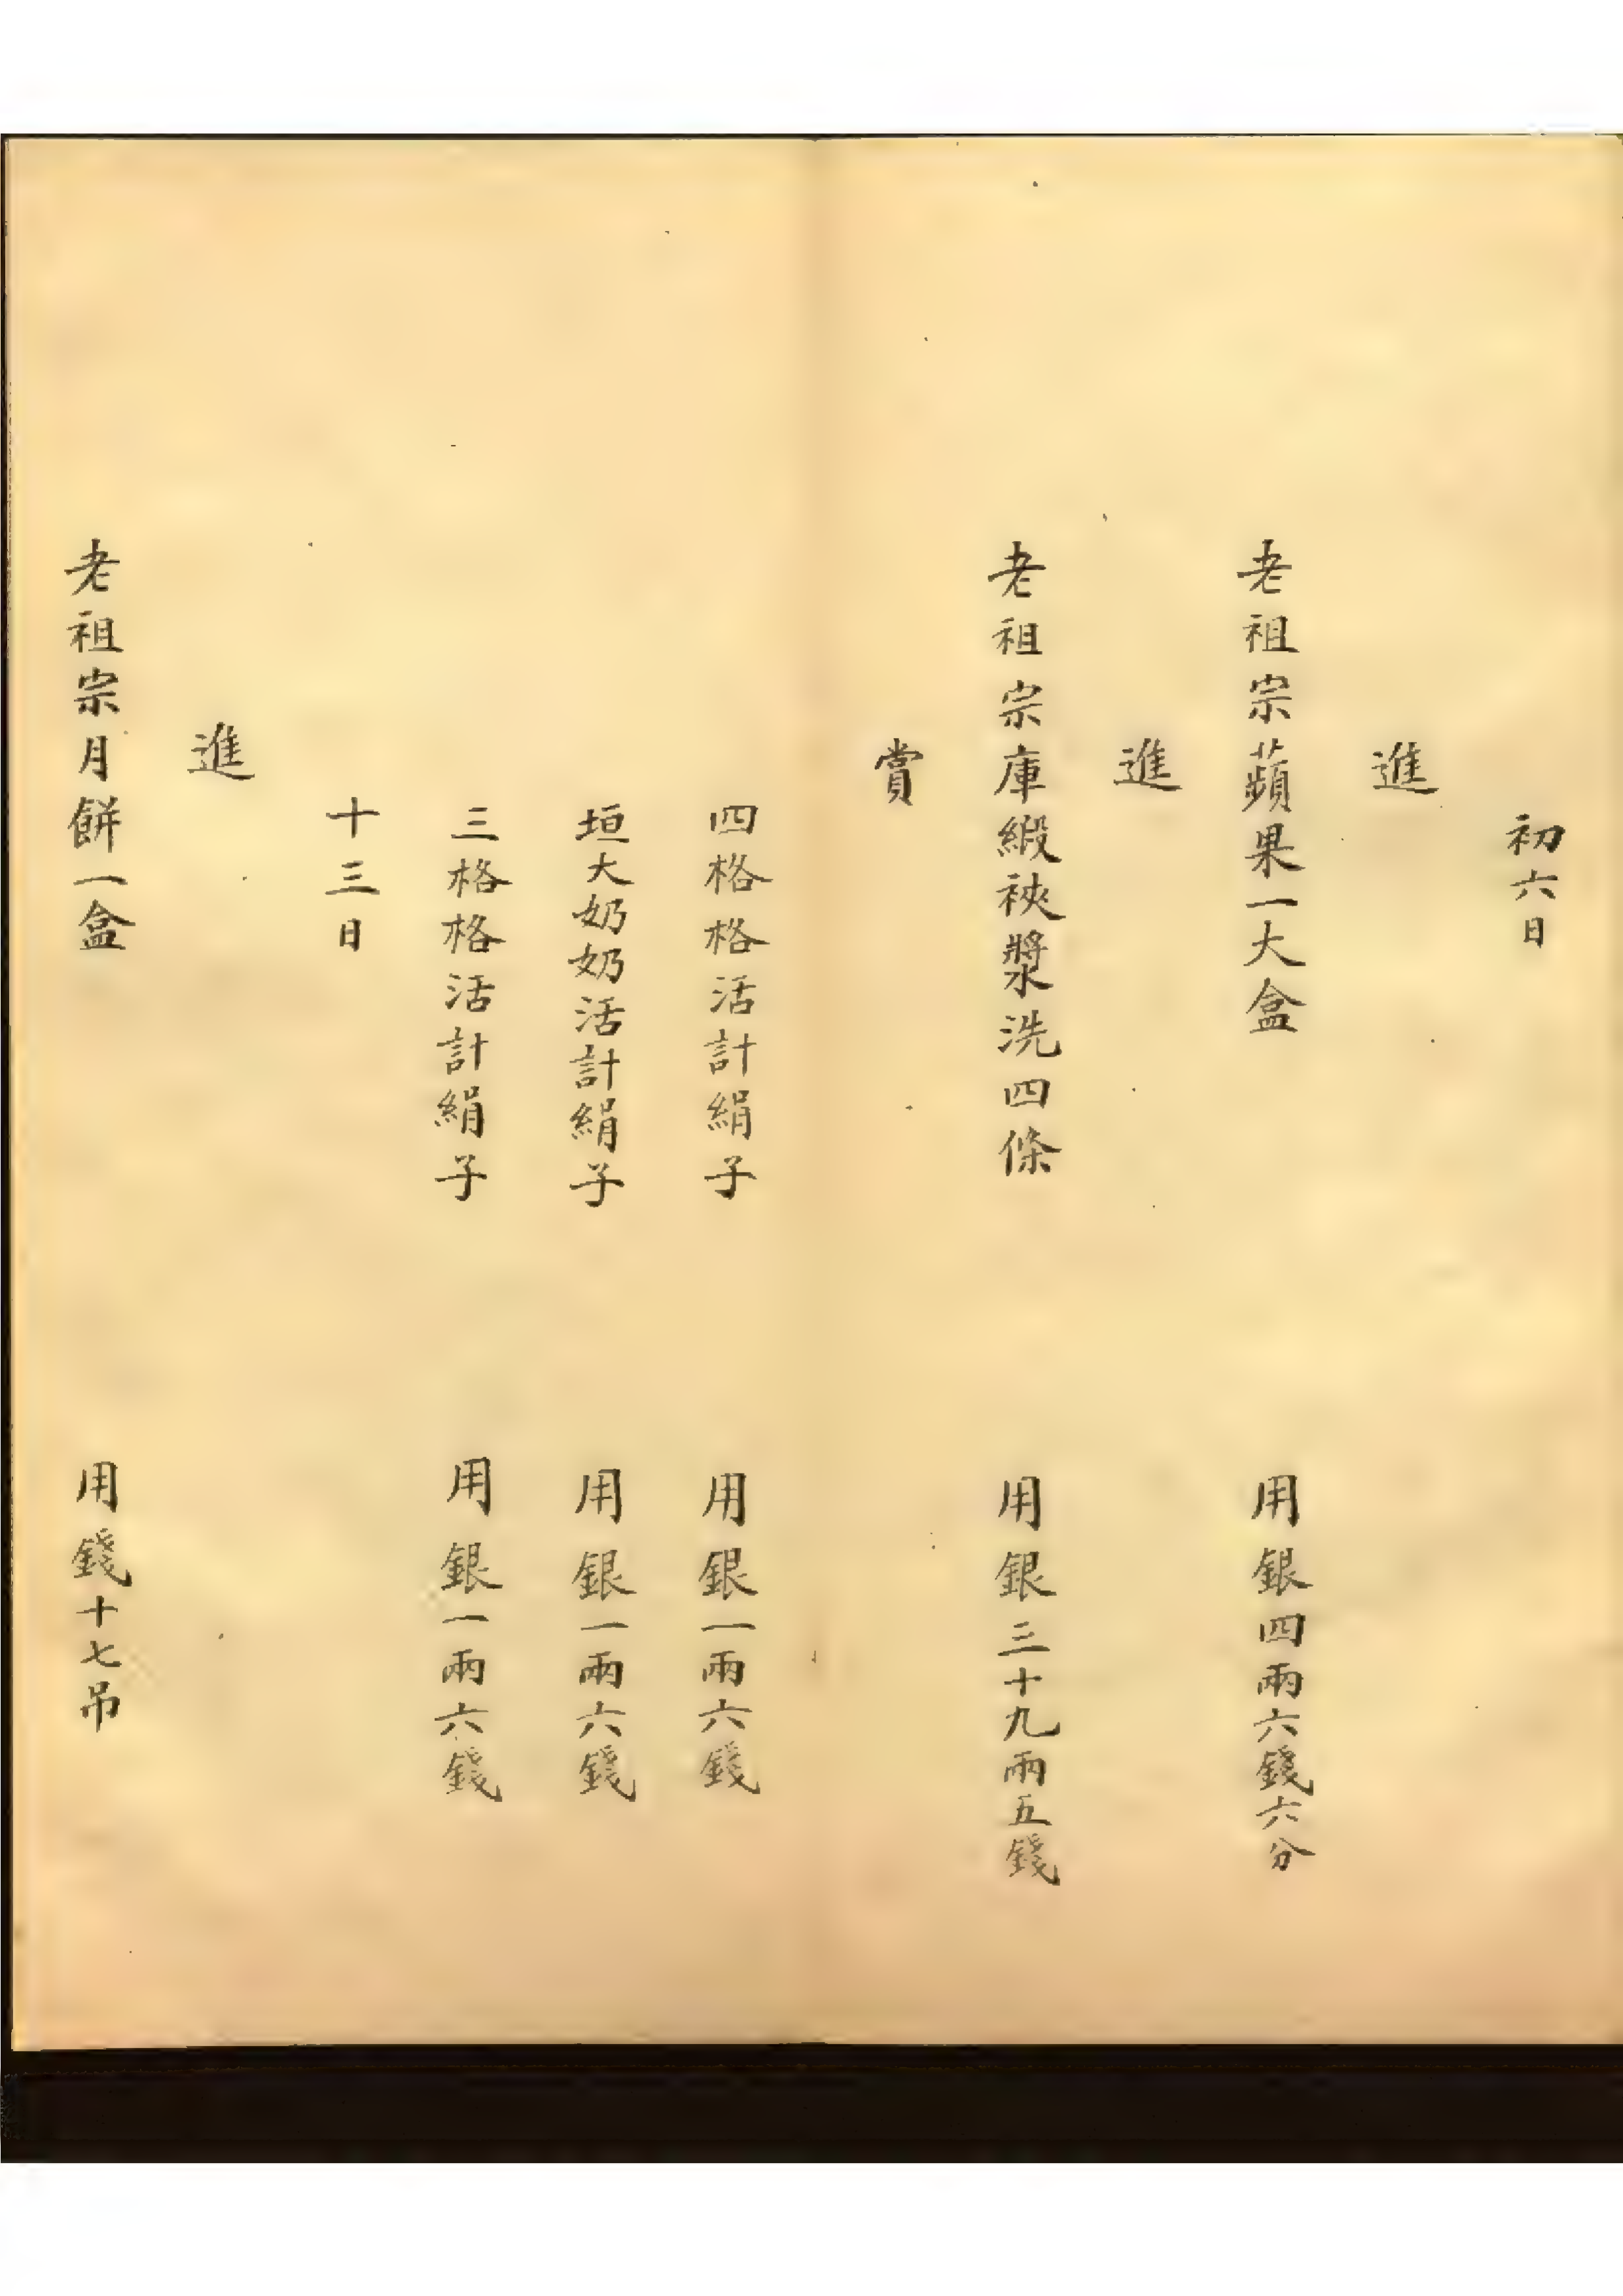 初六日
進
老祖宗蘋果一大盒 用銀四兩六錢六分
進
老祖宗庫緞裌漿洗四條 用銀三十九兩五錢
賞
四格格活計絹子 用銀一兩六錢
垣大奶奶活計絹子 用銀一兩六錢
三格格活計絹子 用銀一兩六錢
十三日
進
老祖宗月餅一盒 用錢十七吊